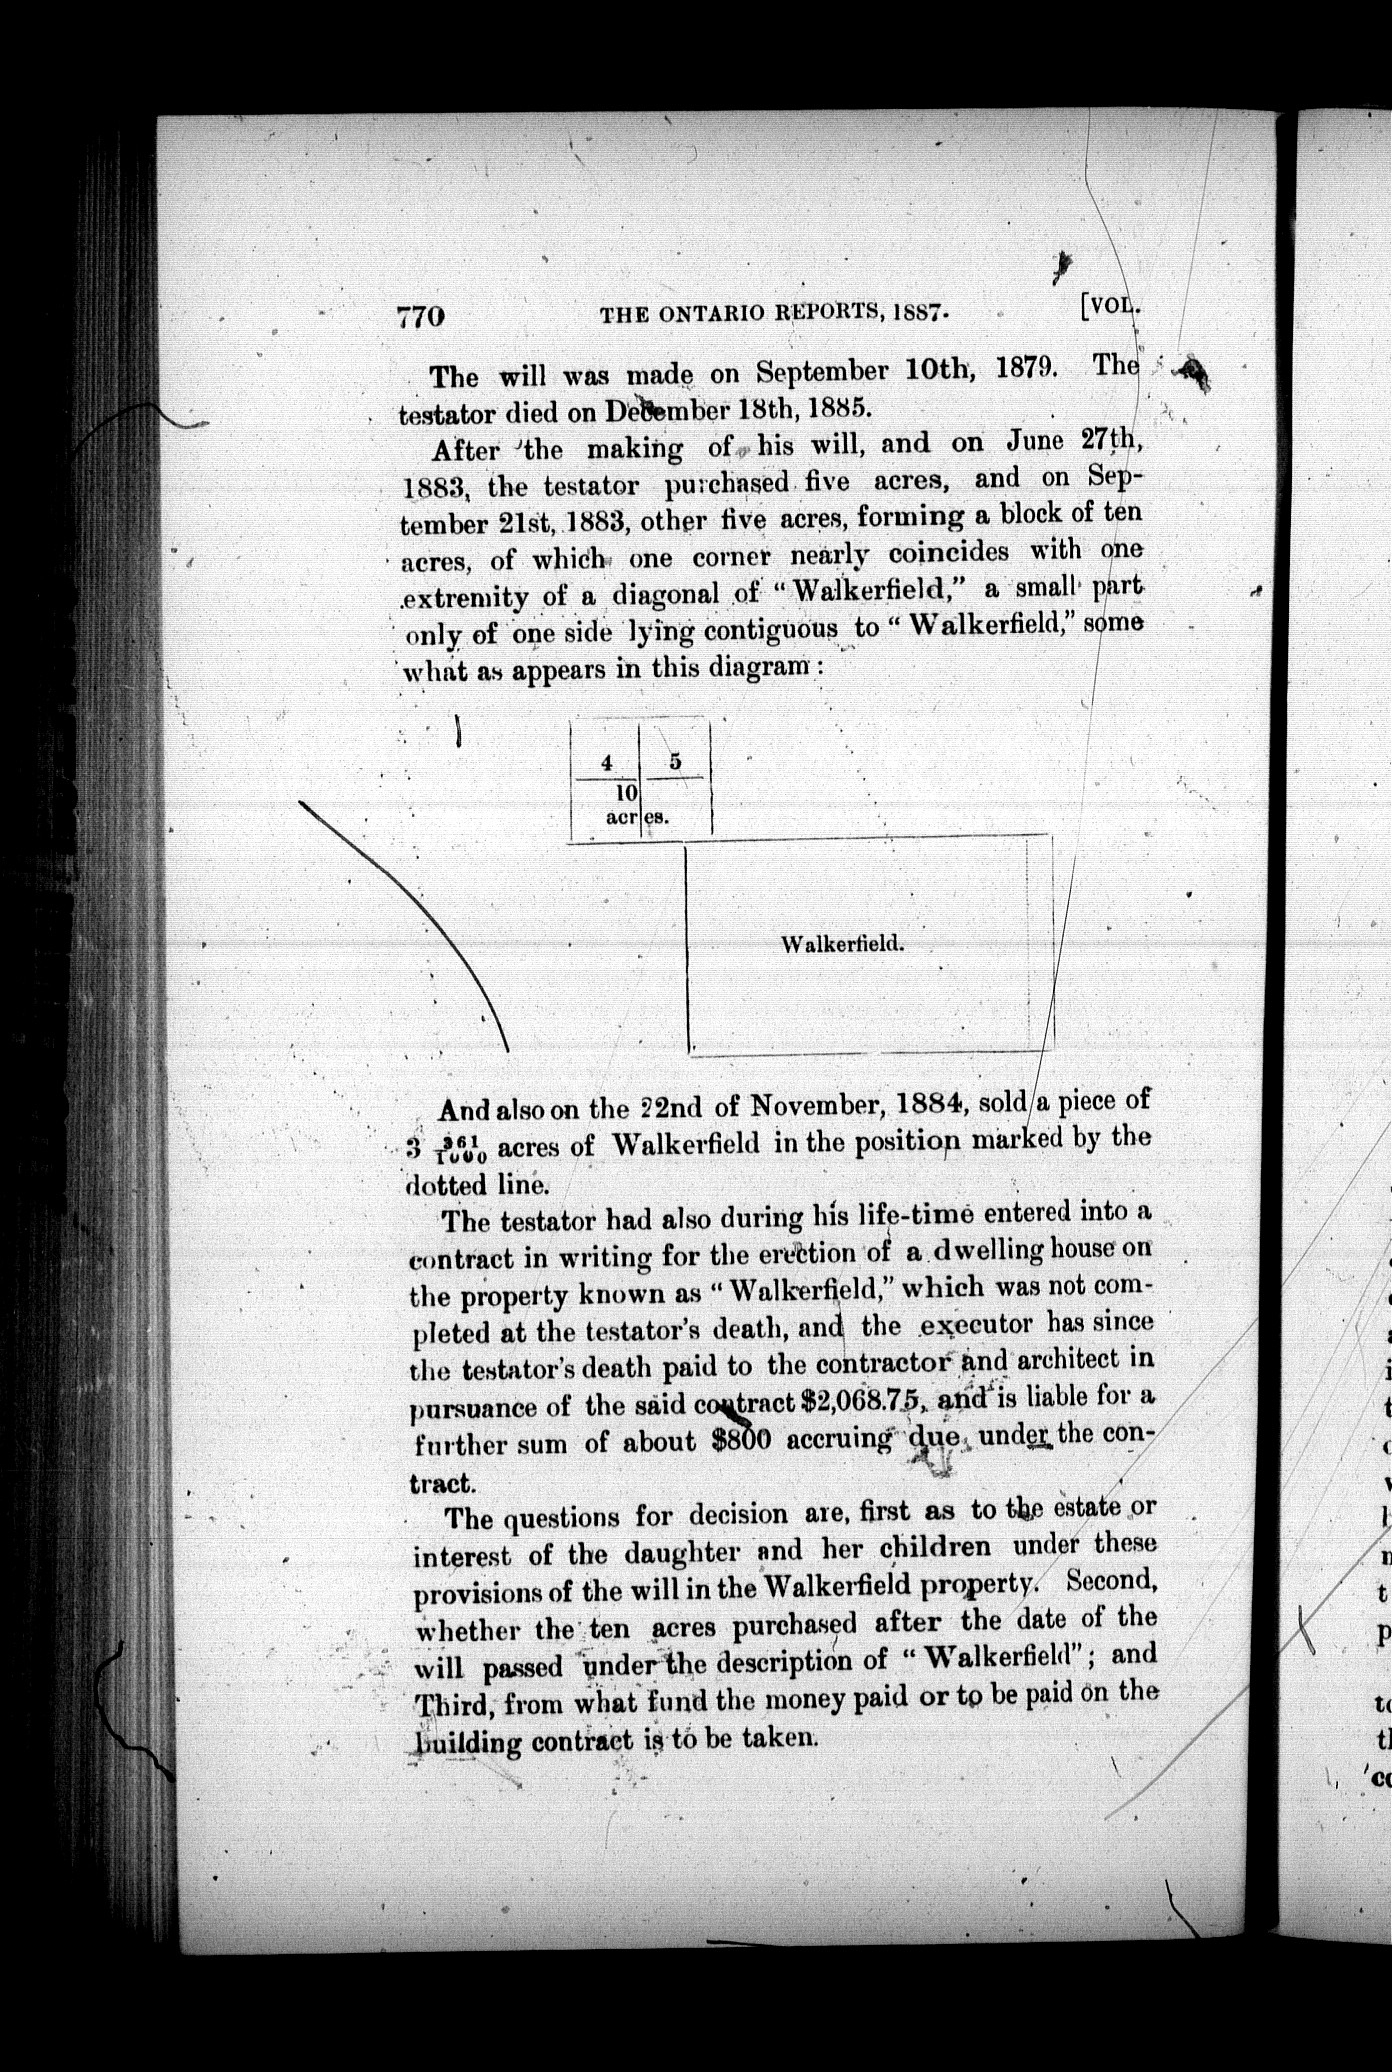 770 THE ONTARIO REPORTS, 1887. [VOL.
The will was made on September 10th, 1879. The
testator died on December 18th, 1885.
After the making of his will, and on June 27th,
1883, the testator purchased five acres, and on Sep-
tember 21st, 1883, other five acres, forming a block of ten
acres, of which one corner nearly coincides with one
extremity of a diagonal of "Walkerfield," a small part
only of one side lying contiguous to "Walkerfield," some
what as appears in this diagram:
4 5
10
acres.
Walkerfield.
And also on the 22nd of November, 1884, sold a piece of
3 361/1000 acres of Walkerfield in the position marked by the
dotted line.
The testator had also during his life-time entered into a
contract in writing for the erection of a dwelling house on
the property known as "Walkerfield," which was not com-
pleted at the testator's death, and the executor has since
the testator's death paid to the contractor and architect in
pursuance of the said contract $2,068.75, and is liable for a
further sum of about $800 accruing due under the con-
tract.
The questions for decision are, first as to the estate or
interest of the daughter and her children under these
provisions of the will in the Walkerfield property. Second,
whether the ten acres purchased after the date of the
will passed under the description of "Walkerfield"; and
Third, from what fund the money paid or to be paid on the
building contract is to be taken.